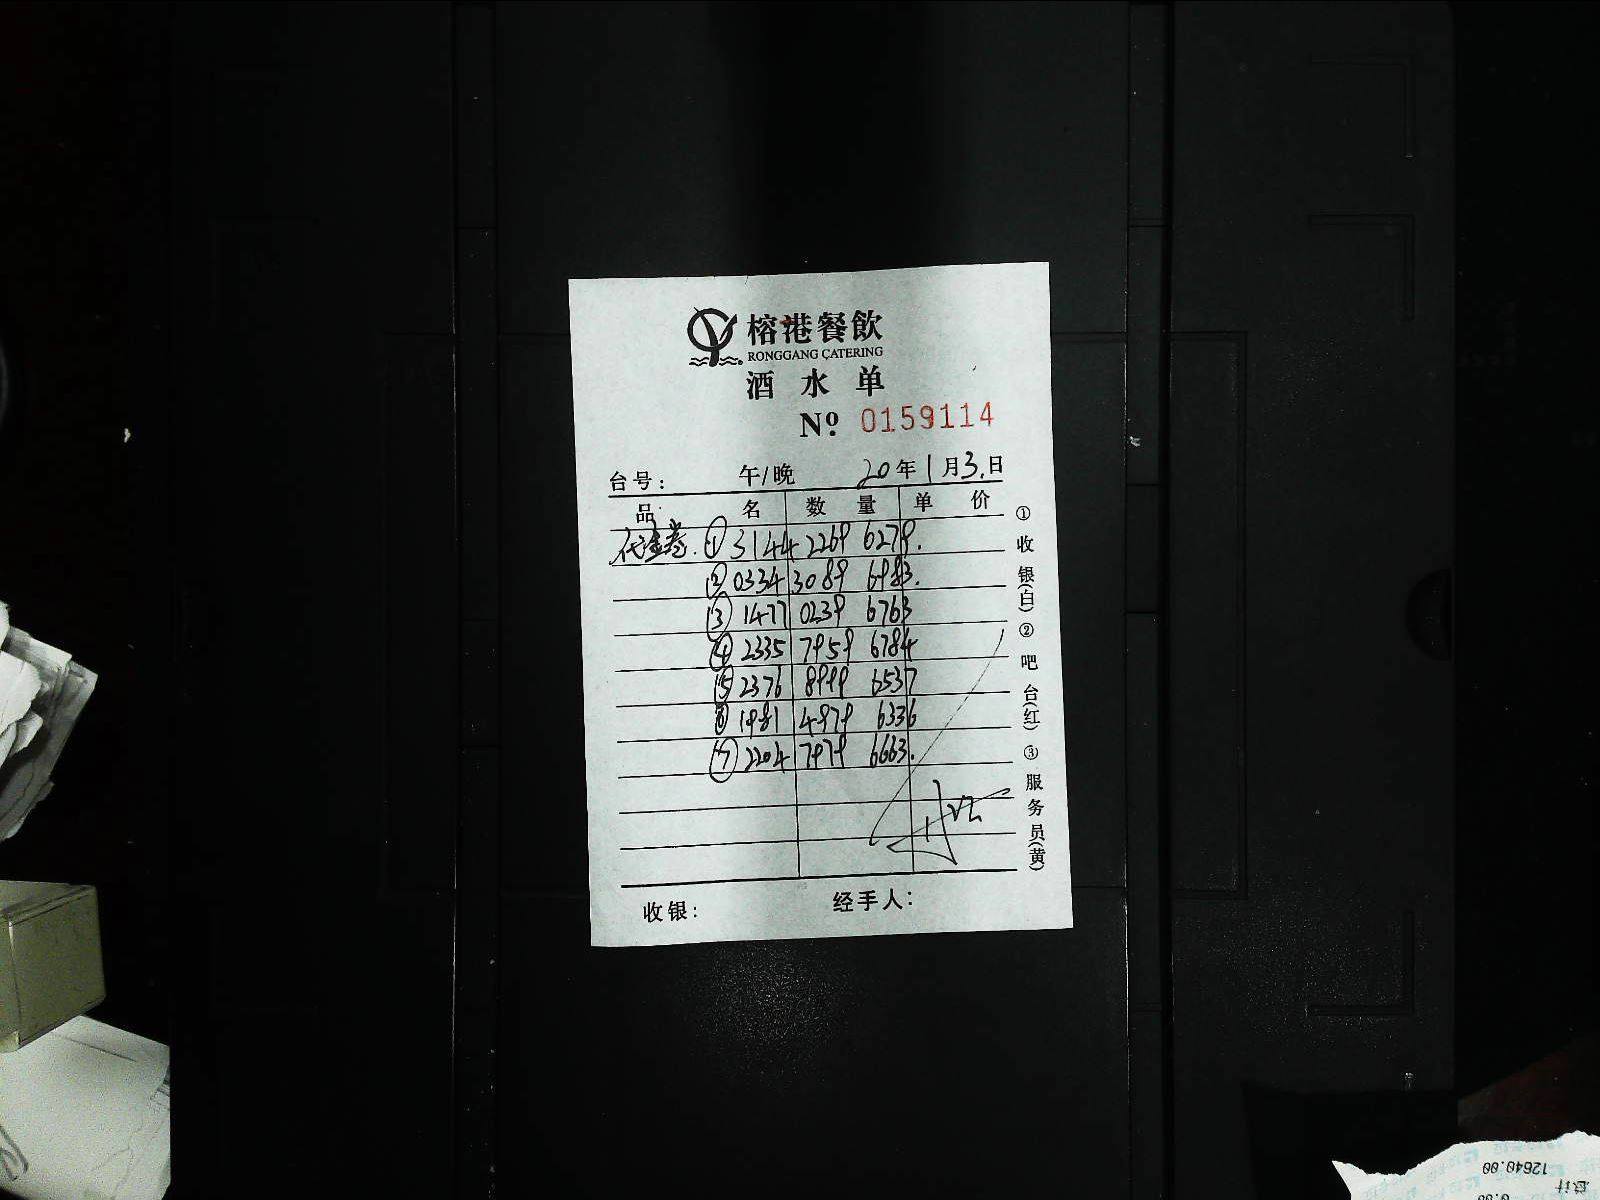 榕港餐飲
RONGGANG CATERING
酒水单
Nº 0159114
台号: 午/晚 20年1月3.日
品名 数量 单价
代金卷. ① 3144 2269 6279.
② 0334 3089 6983.
③ 1477 0239 6763
④ 2335 7959 6784
⑤ 2376 8999 6537
⑥ 1981 4979 6336
⑦ 2204 7979 6663.
收银: 经手人:
①收银(白) ②吧台(红) ③服务员(黄)
12640.00
总计